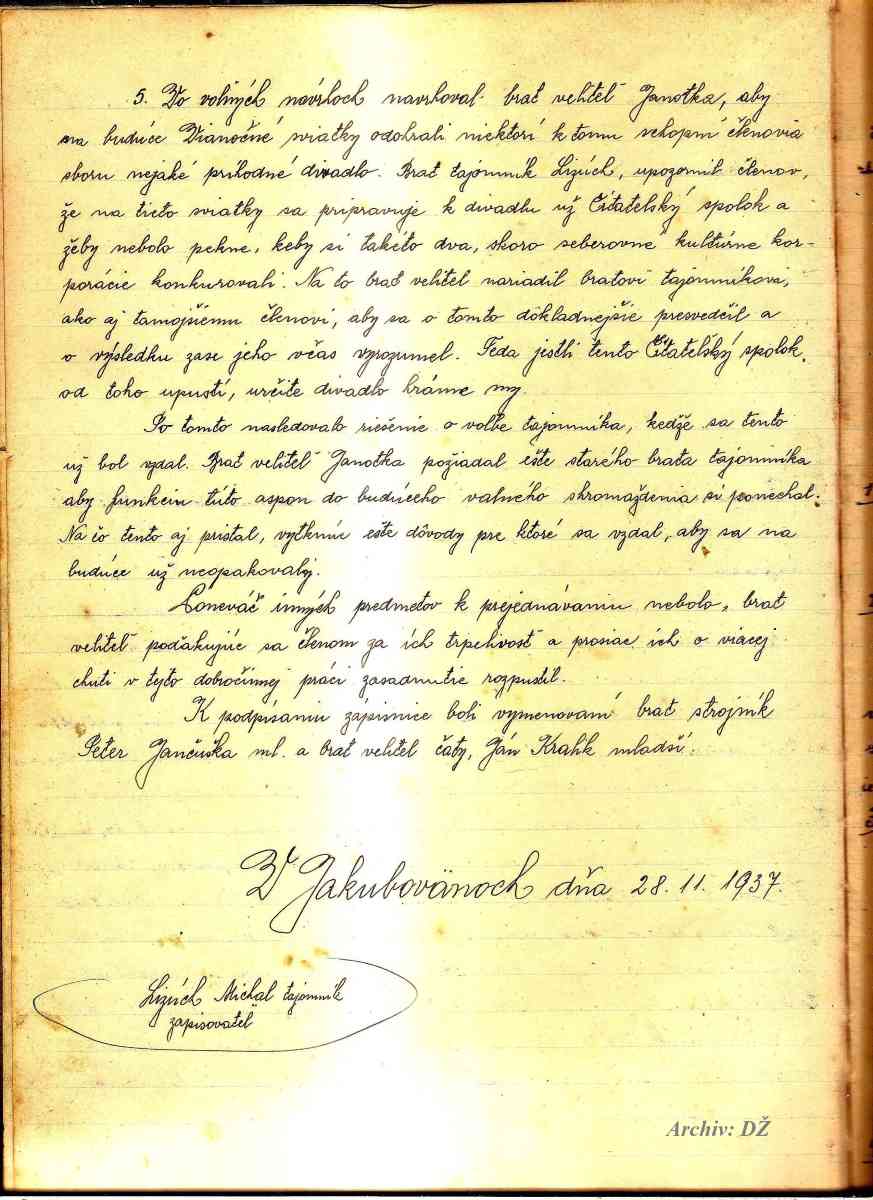 5. Vo voľných návrhoch navrhoval brat veliteľ Janotka, aby
na budúce Vianočné sviatky odohrali niektorí k tomu schopní členovia
sboru nejaké príhodné divadlo. Brat tajomník Lizúch, upozornil členov,
že na tieto sviatky sa pripravuje k divadlu už Čitateľský spolok a
žeby nebolo pekne, keby si takéto dva, skoro seberovné kultúrne kor-
porácie konkurovali. Na to brat veliteľ nariadil bratovi tajomníkovi,
ako aj tamojšiemu členovi, aby sa o tomto dôkladnejšie presvedčil a
o výsledku zase jeho včas vyrozumel. Teda jestli tento Čitateľský spolok,
od toho upustí, určite divadlo hráme my.
Po tomto nasledovalo riešenie o voľbe tajomníka, kedže sa tento
už bol vzdal. Brat veliteľ Janotka požiadal ešte starého brata tajomníka
aby funkciu túto aspon do budúceho valného shromaždenia si ponechal.
Na čo tento aj pristal, vytknúc ešte dôvody pre ktoré sa vzdal, aby sa na
budúce už neopakovaly.
Poneváč iných predmetov k prejednávaniu nebolo, brat
veliteľ poďakujúc sa členom za ích trpelivosť a prosiac ích o viacej
chuti v tejto dobročinnej práci zasadnutie rozpustil.
K podpísaniu zápisnice boli vymenovaní brat strojník
Peter Jančuška ml. a brat velitel čaty, Ján Krahk mladší.
V Jakubovänoch dňa 28. 11. 1937.
Lizúch Michal tajomník
zapisovateľ
Archiv: DŽ